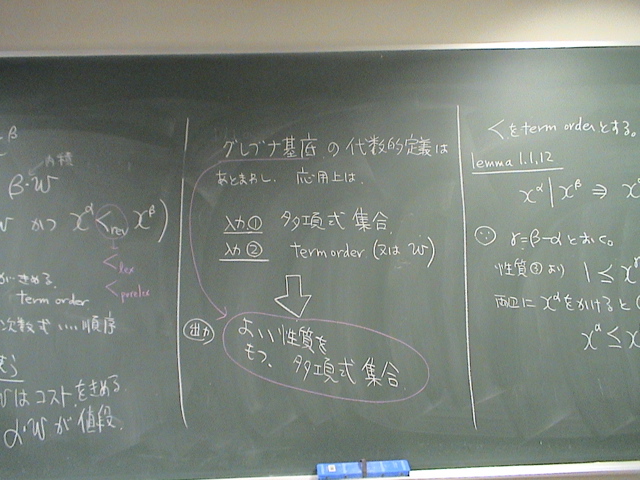 β
内積
β・w
w かつ x^α <rev x^β )
<lex
<purelex
がきめる.
term order
次数式 … 順序
wはコストをきめる.
α・w が値段.
グレブナ基底の代数的定義は
あとまわし. 応用上は.
入力① 多項式集合.
入力② term order (又は w)
出力
よい性質を
もつ. 多項式集合.
<をterm orderとする.
lemma 1.1.12
x^α | x^β ⇒
γ=β-αとおく.
性質②より 1 ≤ x^γ
両辺にx^αをかけると
x^α ≤ x